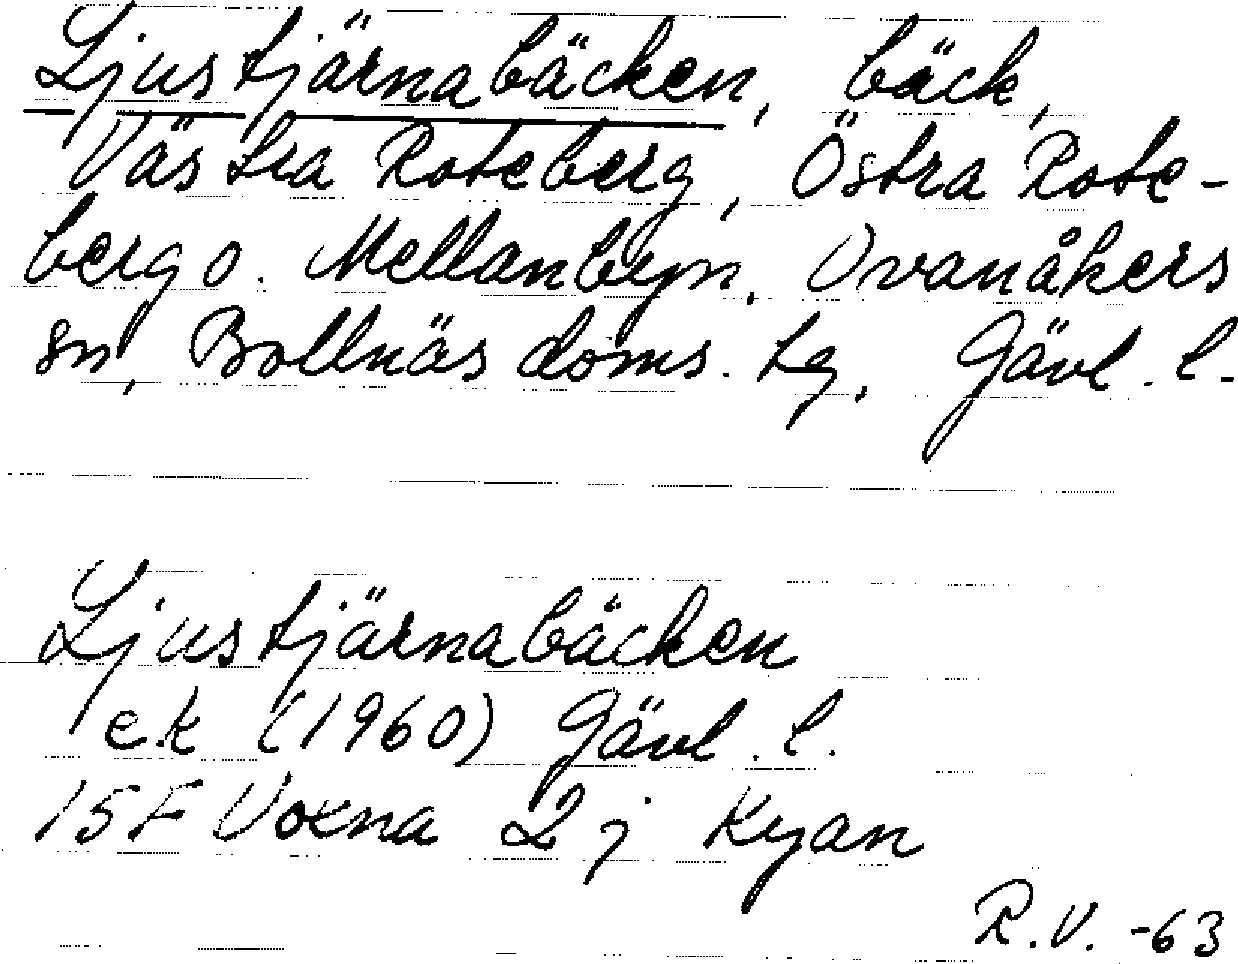 Ljustjärnabäcken, bäck,
Västra Roteberg, Östra Rote-
berg o. Mellanbyn, Ovanåkers
sn, Bollnäs doms. tg, Gävl. l.
Ljustjärnabäcken
ek (1960) Gävl. l.
15F Voxna 2j Kyan
R.V. -63